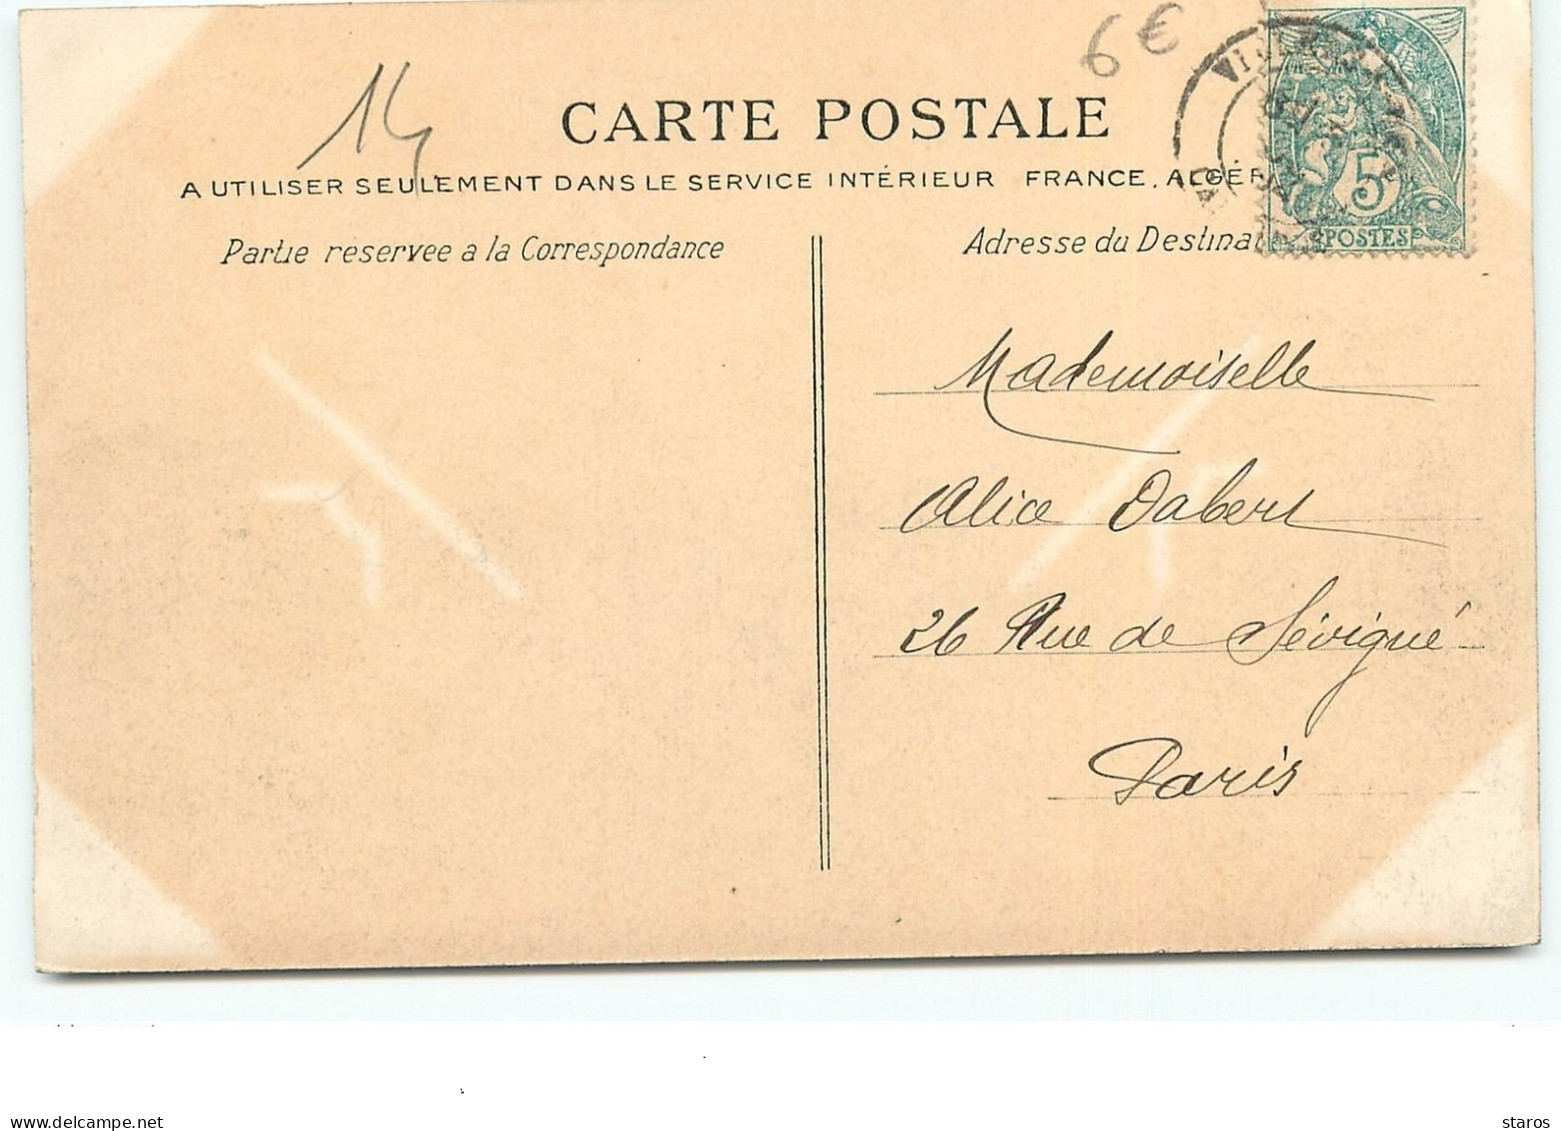 6€
14
CARTE POSTALE
A UTILISER SEULEMENT DANS LE SERVICE INTÉRIEUR FRANCE, ALGÉR
Partie reservee a la Correspondance
Adresse du Destinat
5
POSTES
Mademoiselle
Alice Dabert
26 Rue de Sévigné
Paris
www.delcampe.net
staros